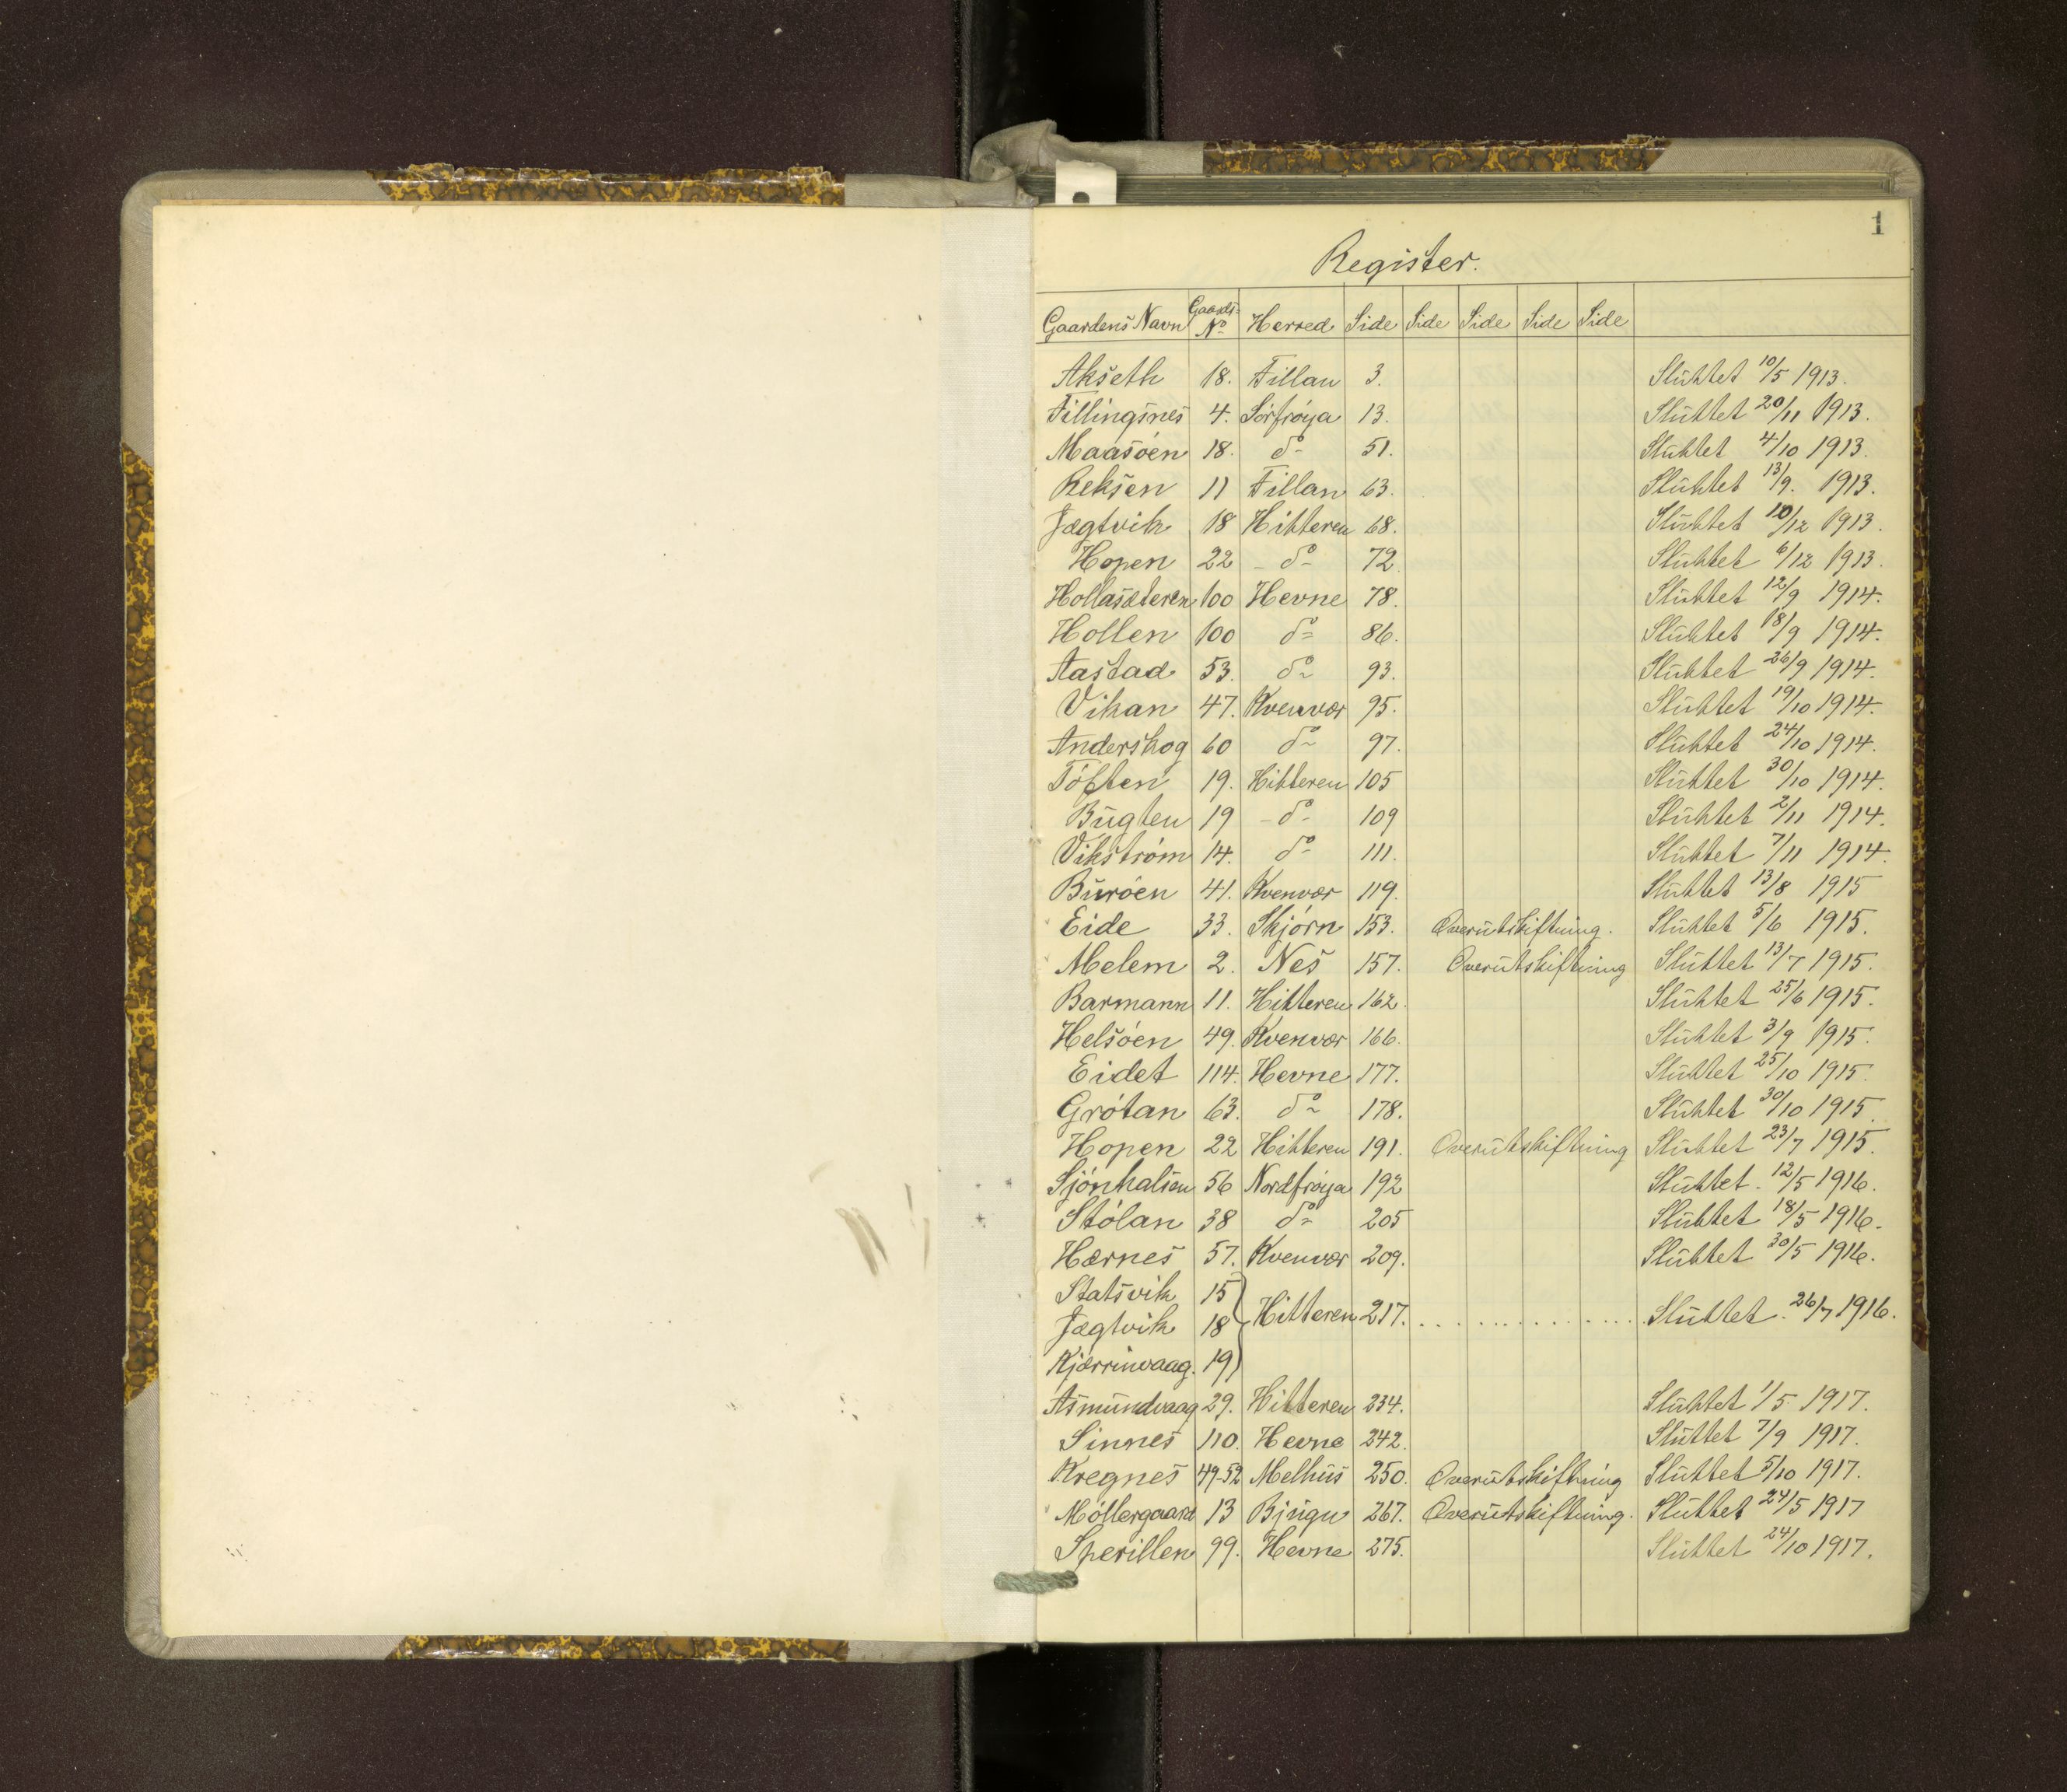 1
Register.
Gaardens Navn Gaards-No Herred Side Side Side Side Side
Akseth 18. Fillan 3. Sluttet 10/5 1913.
Fillingsnes 4. Sörfröya 13. Sluttet 20/11 1913.
Maasöen 18. do 51. Sluttet 4/10 1913.
Reksen 11 Fillan 63. Sluttet 13/9. 1913.
Jægtvik 18 Hitteren 68. Sluttet 10/12 1913.
Hopen 22 - do - 72 Sluttet 6/12 1913.
Hollasæteren 100 Hevne 78. Sluttet 12/9 1914.
Hollen 100 do 86. Sluttet 18/9 1914.
Aastad 53. do 93. Sluttet 26/9 1914.
Vikan 47. Kvenvær 95. Sluttet 19/10 1914.
Anderskog 60 do 97. Sluttet 24/10 1914.
Töften 19. Hitteren 105 Sluttet 30/10 1914.
Bugten 19 - do - 109 Sluttet 2/11 1914.
Vikström 14. do 111. Sluttet 7/11 1914.
Buröen 41. Kvenvær 119. Sluttet 13/8 1915
Eide 33. Skjörn 153. Overutskiftning. Sluttet 5/6 1915.
Melem 2. Nes 157. Overutskiftning Sluttet 13/7 1915.
Barmann 11. Hitteren 162. Sluttet 25/6 1915.
Helsöen 49. Kvenvær 166. Sluttet 3/9 1915.
Eidet 114. Hevne 177. Sluttet 25/10 1915.
Grötan 63. do 178. Sluttet 30/10 1915.
Hopen 22 Hitteren 191. Overutskiftning Sluttet 23/7 1915.
Sjönhalsen 56 Nordfröya 192 Sluttet. 12/5 1916.
Stölan 38 do 205 Sluttet 18/5 1916.
Hærnes 57. Kvenvær 209. Sluttet 30/5 1916.
Statsvik 15
Jægtvik 18 Hitteren 217. . . . . . . . . . . . . . Sluttet. 26/7 1916.
Kjærrinvaag. 19
Asmundvaag 29. Hitteren 234. Sluttet 1/5 1917.
Sinnes 110. Hevne 242. Sluttet 7/9 1917.
Kregnes 49-52 Melhus 250. Overutskiftning Sluttet 5/10 1917.
Möllergaard 13 Bjugn 267. Overutskiftning. Sluttet 24/5 1917
Sperillen 99. Hevne 275. Sluttet 24/10 1917.